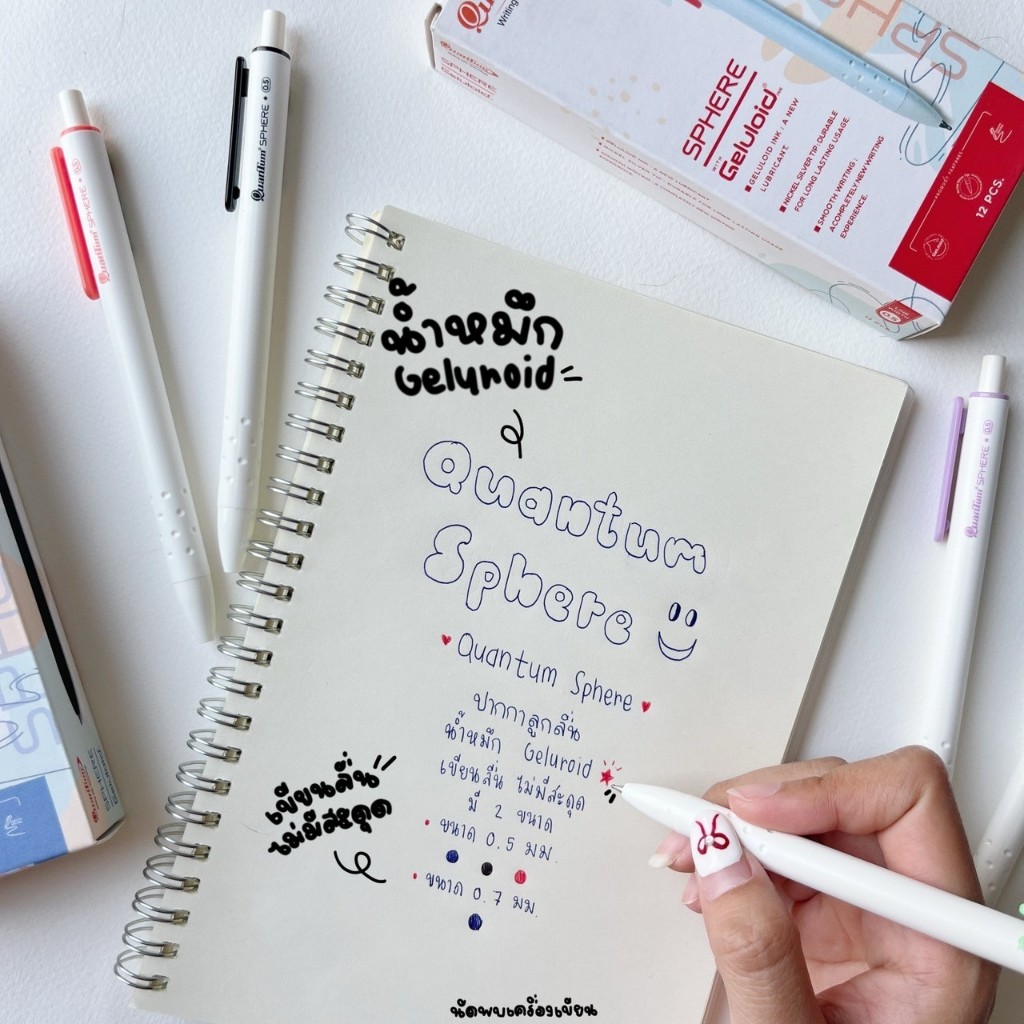 Quantum SPHERE • 0.5
Quantum SPHERE • 0.5
Writing
Quantum
SPHERE
SPHERE
WITH Geluloid
■ GELULOID INK : A NEW
LUBRICANT.
■ NICKEL SILVER TIP : DURABLE
FOR LONG LASTING USAGE.
■ SMOOTH WRITING :
A COMPLETELY NEW WRITING
EXPERIENCE.
12 PCS.
น้ำหมึก
Geluroid
Quantum
Sphere
Quantum Sphere
ปากกาลูกลื่น
น้ำหมึก Geluroid
เขียนลื่น ไม่มีสะดุด
มี 2 ขนาด
• ขนาด 0.5 มม.
• ขนาด 0.7 มม.
เขียนลื่น
ไม่มีสะดุด
Quantum SPHERE • 0.5
Quantum
SPHERE
นัดพบเครื่องเขียน